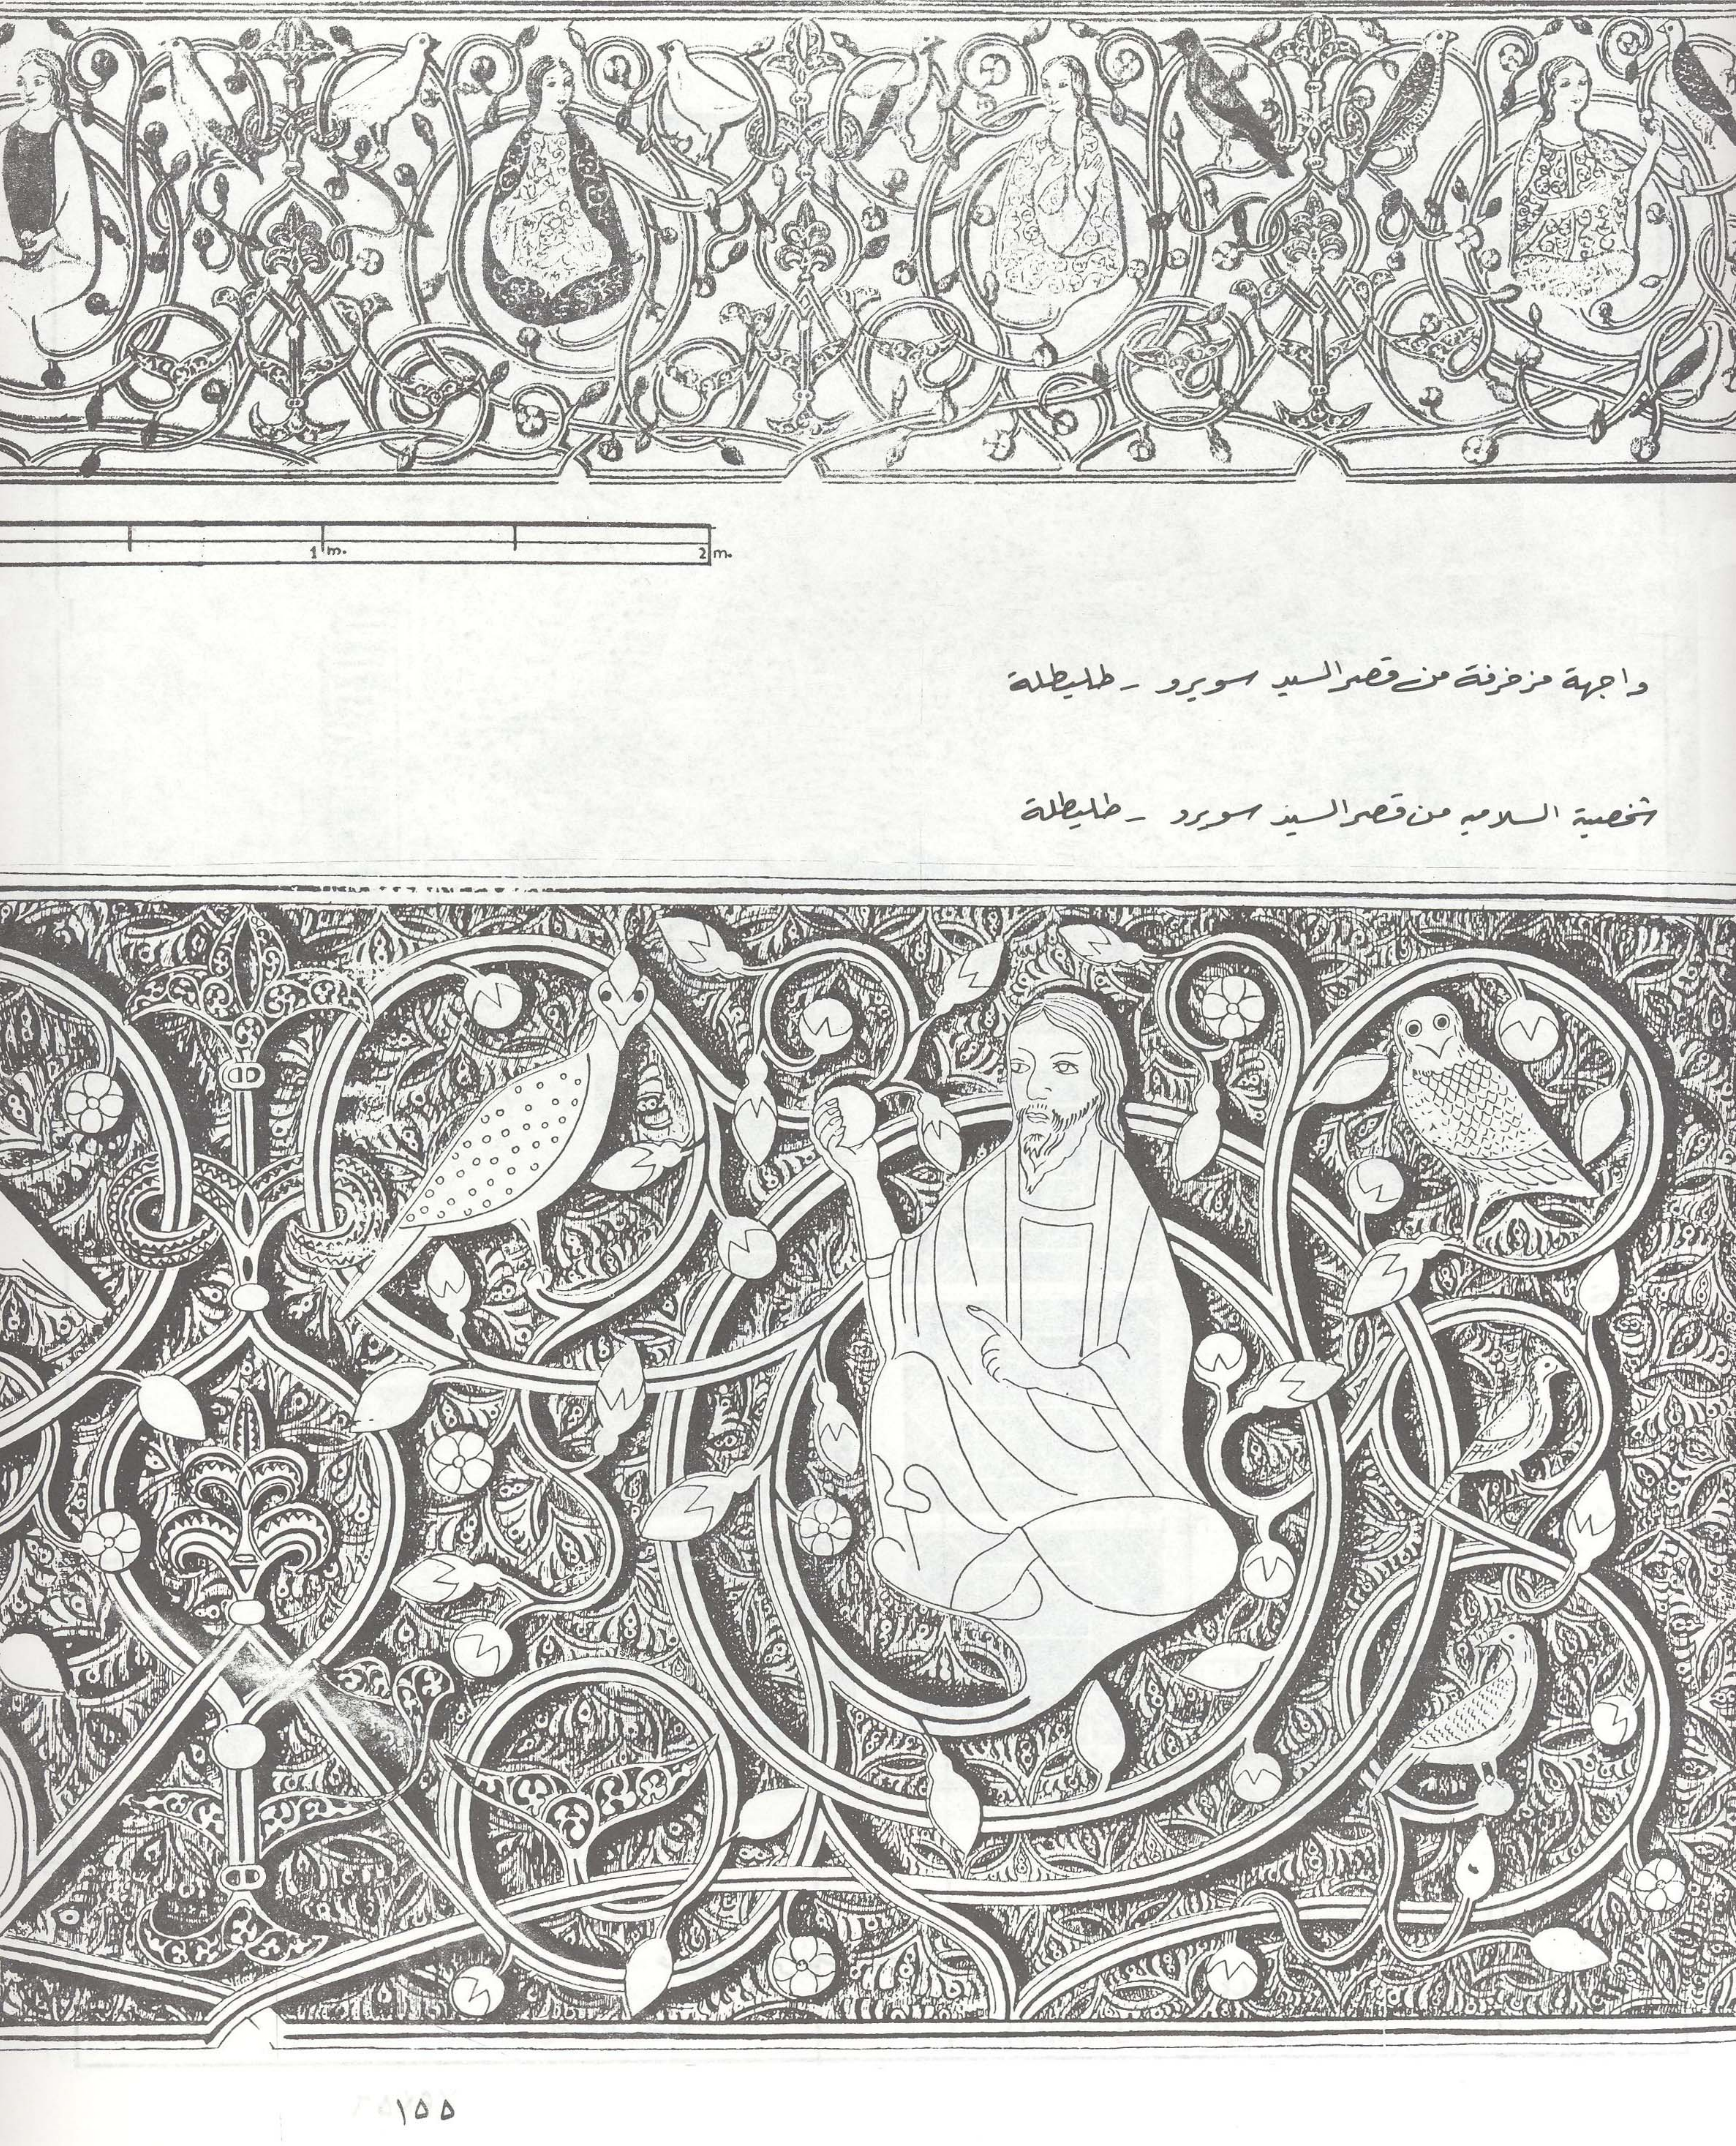 1 m.
2 m.
واجهة مزخرفة من قصر السيد سويرو - طليطلة
شخصية اسلاميه من قصر السيد سويرو - طليطلة
١٥٥